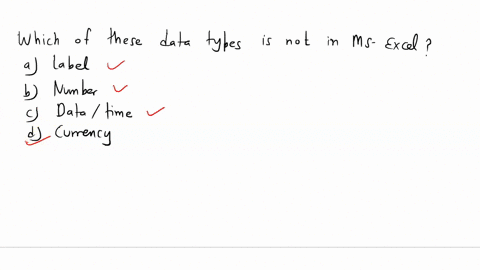 Which of these data types is not in Ms-Excel?
a) Label
b) Number
c) Data/time
d) Currency